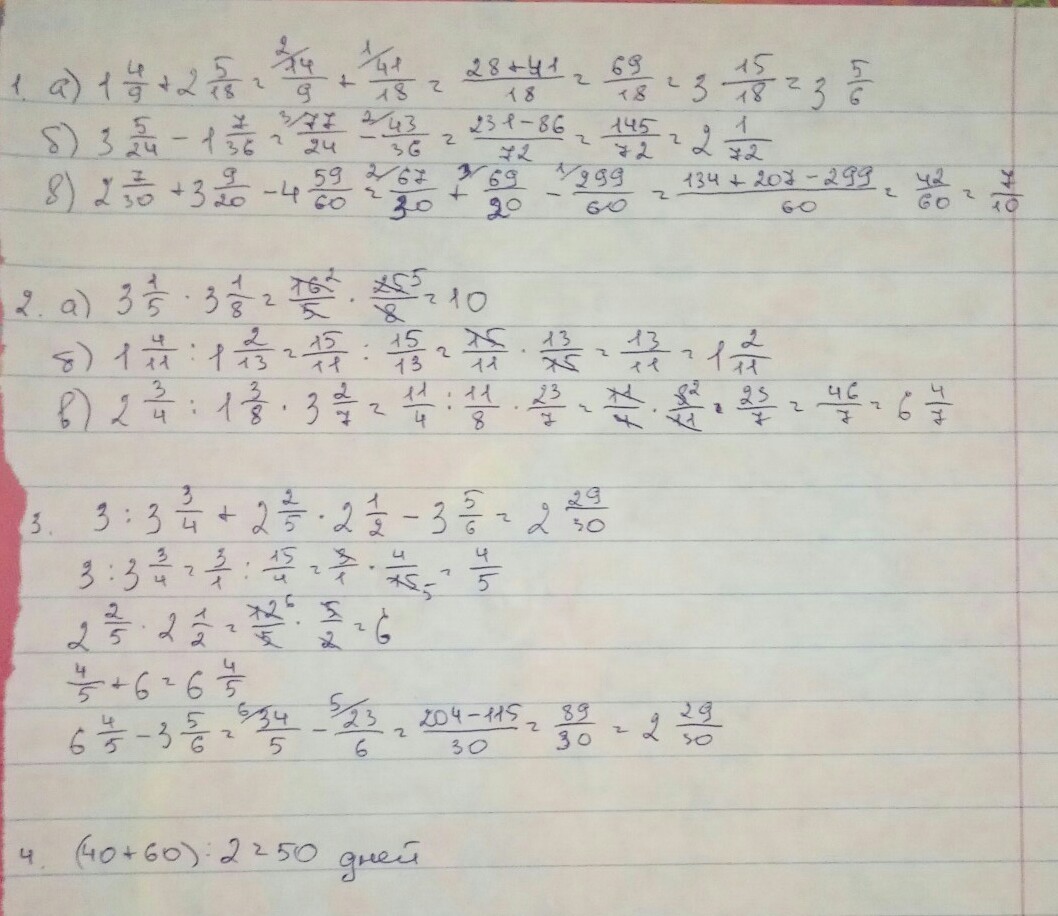 1. а) 1 4/9 + 2 5/18 = 2/14/9 + 1/41/18 = (28+41)/18 = 69/18 = 3 15/18 = 3 5/6
б) 3 5/24 - 1 7/36 = 3/77/24 - 2/43/36 = (231-86)/72 = 145/72 = 2 1/72
в) 2 7/30 + 3 9/20 - 4 59/60 = 2/67/30 + 3/69/20 - 1/299/60 = (134+207-299)/60 = 42/60 = 7/10
2. а) 3 1/5 · 3 1/8 = 16 2/5 · 25 5/8 = 10
б) 1 4/11 : 1 2/13 = 15/11 : 15/13 = 15/11 · 13/15 = 13/11 = 1 2/11
в) 2 3/4 : 1 3/8 · 3 2/7 = 11/4 : 11/8 · 23/7 = 11/4 · 8 2/11 · 23/7 = 46/7 = 6 4/7
3. 3 : 3 3/4 + 2 2/5 · 2 1/2 - 3 5/6 = 2 29/30
3 : 3 3/4 = 3/1 : 15/4 = 3/1 · 4/15 5 = 4/5
2 2/5 · 2 1/2 = 12 6/5 · 5/2 = 6
4/5 + 6 = 6 4/5
6 4/5 - 3 5/6 = 6/34/5 - 5/23/6 = (204-115)/30 = 89/30 = 2 29/30
4. (40+60) : 2 = 50 дней